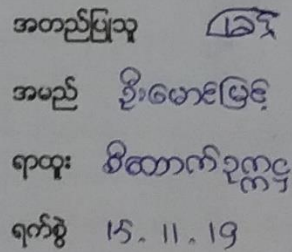 အတည်ပြုသူ
အမည် ဦးမောင်မြင့်
ရာထူး စိတောက်ဥက္ကဋ္ဌ
ရက်စွဲ 15.11.19